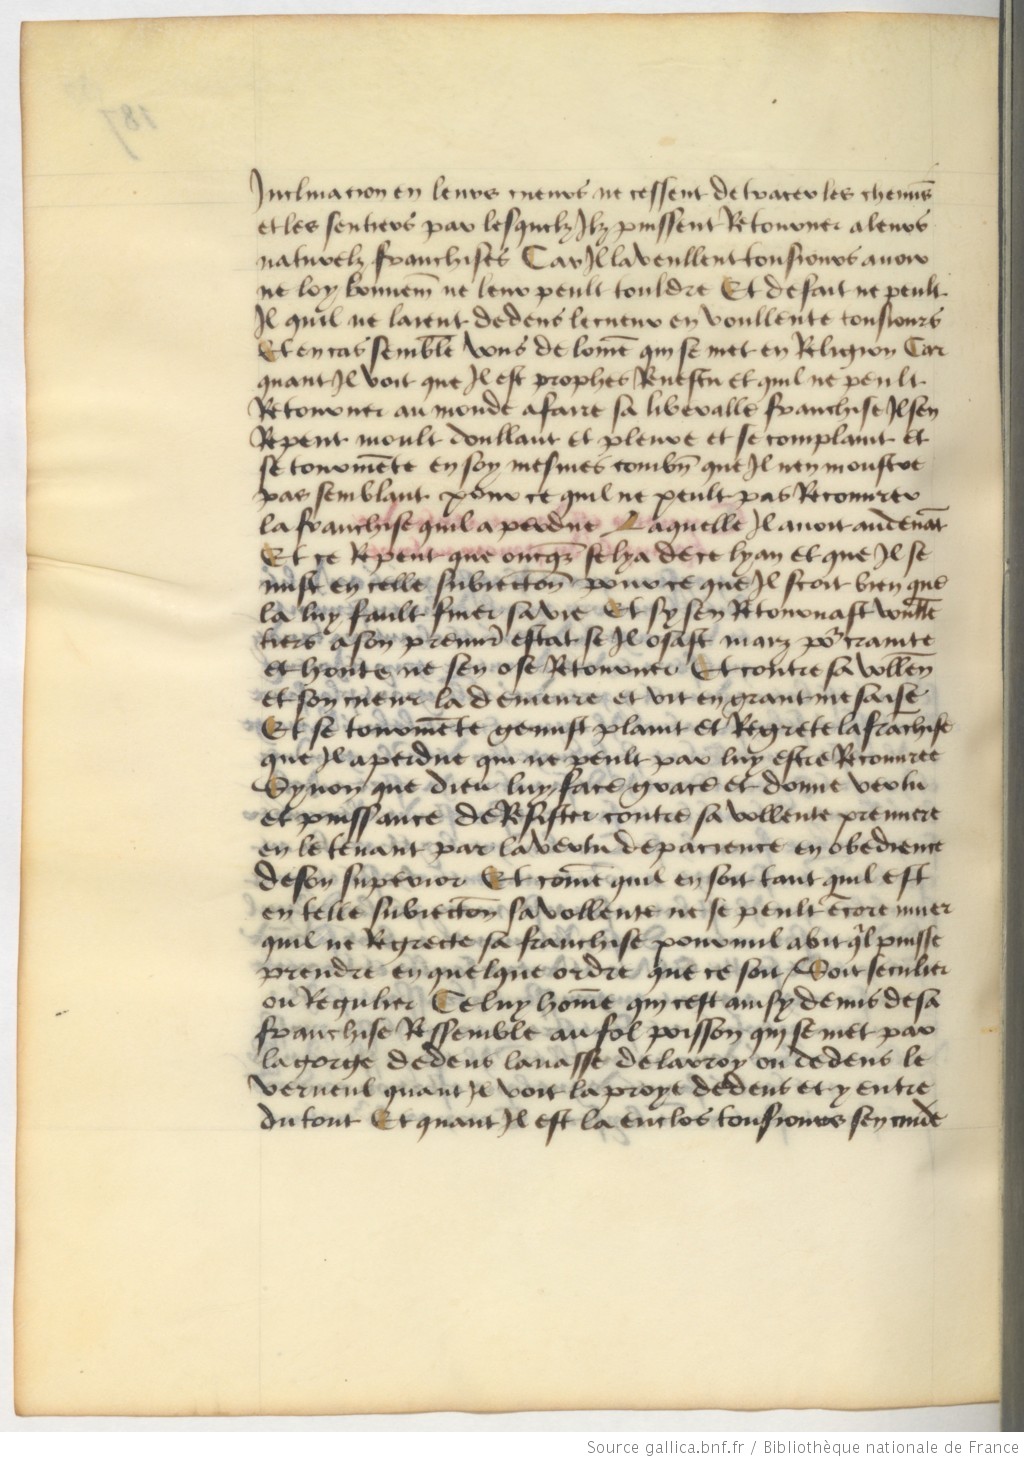 Inclinacion en leurs cueurs ne cessent de tracer les chemīs
et les sentiers par lesquelz Ilz puissent Retourner a leurs
naturelz franchises Car Il la veullent tousiours avoir
ne loy bonnem̄ ne leur peult touldre Et de fait ne peult
Il quil ne laient dedens le cueur en voullente tousiours
Et en cas semble vous de lom̄e qui se met en Religion Car
quant Il voit que Il est prophes Revestu et quil ne peult
Retourner au monde a faire sa liberalle franchise Il sen
Repent moult doullant et pleure et se complaint et
se tourmēte en soy mesmes combn̄ que Il nen monstre
par semblant pour ce quil ne peult pas Recouvrer
la franchise quil a perdue Laquelle Il avoit au devāt
Et ce Repent que oncq̄z se lya de ce lyan et que Il se
mist en celle subiectōn pour ce que Il scoit bien que
la luy fault finer sa vie Et sy sen Retournast
a son premier estat se Il osast crainte
et honte ne sen ose Retourner Et contre sa vollen
et son cueur la demeure et vit en grant mesaise
Et se tourmēte gemist plaint et Regrete la frāchise
que Il a perdue qui ne peult par luy estre Recouvree
Synon que dieu luy face grace et donne vertu
et puissance de Resister contre sa vollente premiere
en le tenant par la vertu de pacience en obedience
de son superior Et com̄e quil en soit tant quil est
en telle subiectōn sa vollente ne se peult ēcore muer
quil ne Regrecte sa franchise pour nul abit q̄l puisse
prendre en quelque ordre que ce soit / Soit seculier
ou Regulier Celuy hom̄e qui cest ainsy demis de sa
franchise Ressemble au fol poisson qui se met par
la gorge dedens la nasse de larroy ou dedens le
verueul quant Il voit la proye dedens et y entre
du tout Et quant Il est la enclos tousiours sen cuide
187
Source gallica.bnf.fr / Bibliothèque nationale de France